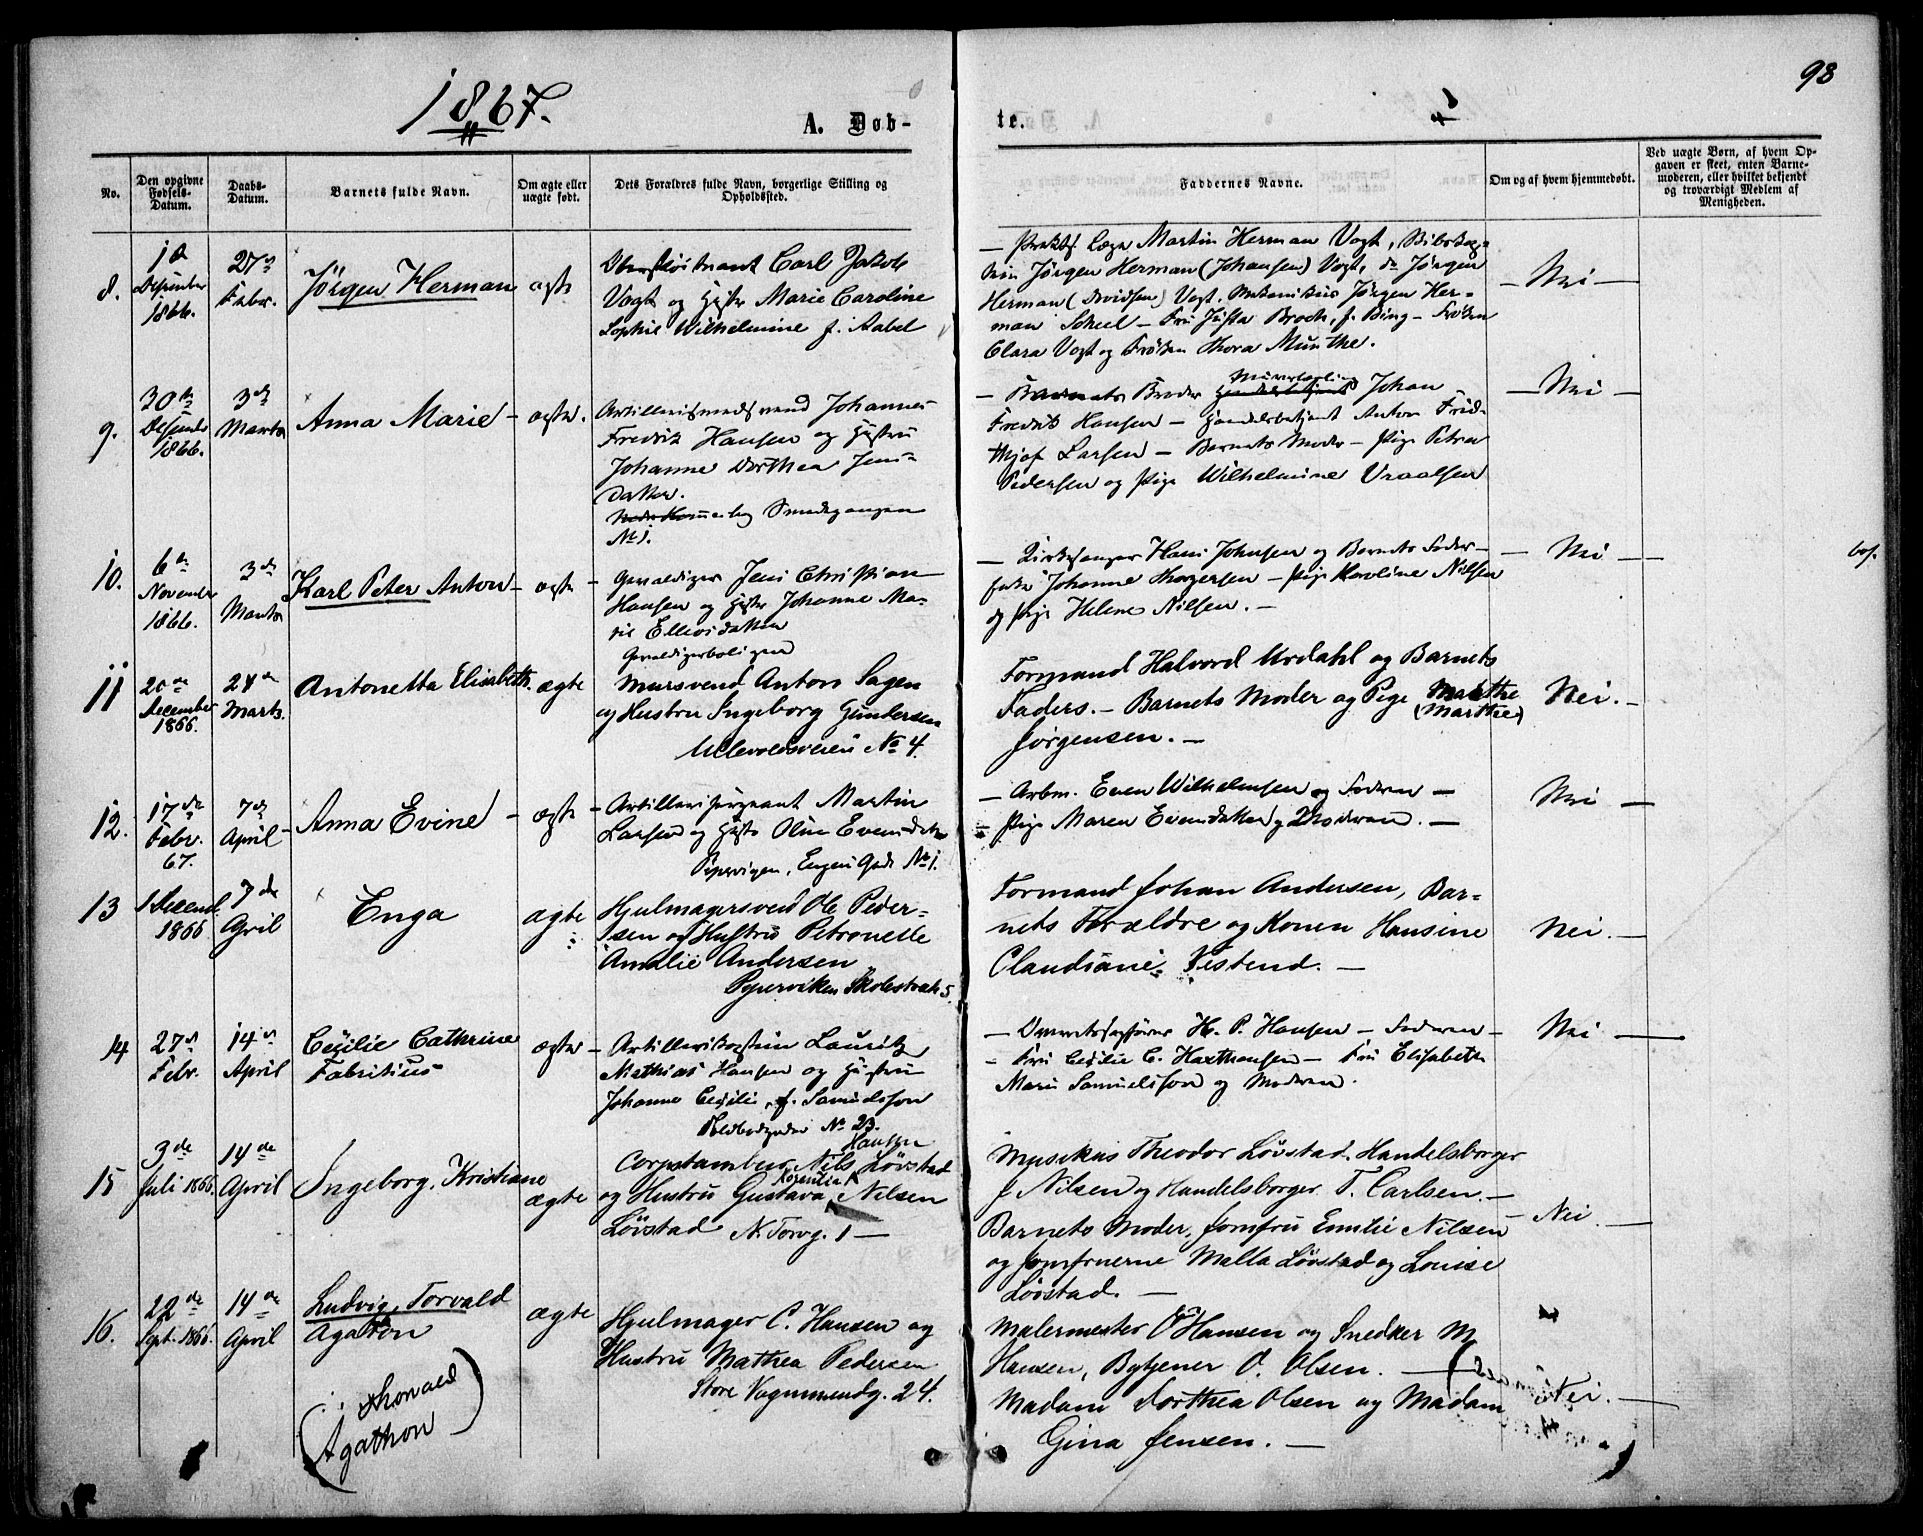 1867.
98
A. Døb-
te.
No.
Den opgivne
Fødsels-
Datum.
Daabs-
Datum.
Barnets fulde Navn.
Om ægte eller
uægte født.
Dets Forældres fulde Navn, borgerlige Stilling og
Opholdssted.
Faddernes Navne.
Om og af hvem hjemmedøbt.
Ved uægte Børn, af hvem Op-
gaven er skeet, enten Barne-
moderen, eller hvilket bekjendt
og troværdigt Medlem af
Menigheden.
8.
December
1866.
27
Febr.
Jörgen Herman
ægte
Oberstlöitnant Carl Jakob
Vogt og Hustru Marie Caroline
Sophie Wilhelmine f. Aabel
– Prakts. Læge Martin Herman Vogt,
Jörgen Herman (Johansen) Vogt, Jörgen
Herman (Davidsen) Vogt. Mekanikus Jörgen Her-
man Scheel – Fru Justa Broch, f. Bing – Fröken
Clara Vogt og Fröken Thora Munthe.
– Nei –
9.
30te
December
1866.
3de
Marts
Anna Marie –
ægte.
Artillerismedsvend Johannes
Fredrik Hansen og Hustru
Johanne Dorthea Jens-
datter.
Smedgangen
No 1.
– Barnets Broder Murerlærling Johan
Fredrik Hansen – Handelsbetjent Anton Frid-
thjof Larsen – Barnets Moder – Pige Petra
Pedersen og Pige Wilhelmine Vraalsen
– Nei –
10.
6te
November
1866.
3de
Marts
Karl Peter Anton –
ægte
– Gevaldiger Jens Christian
Hansen og Hustru Johanne Ma-
rie Ellevsdatter
Gevaldigerboligen
– Kirkesanger Hans Johnsen og Barnets Fader –
Johanne Thorgersen – Pige Karoline Nilsen
og Pige Helene Nilsen. –
– Nei –
11
20de
December
1866.
24de
Marts.
Antonetta Elisabeth.
ægte
Mursvend Anton Sagen
og Hustru Ingeborg Gundersen
Ullevoldsveien No 4.
Formand Halvord Urdahl og Barnets
Faders. – Barnets Moder og Pige Marthe
(Marthe)
Jörgensen. –
Nei. –
12.
17de
Febr.
67.
7de
April
Anna Evine –
ægte
– Artillerisergeant Martin
Larsen og Hustru Oline Evensdatter
Pipervigen, Engens Gade No 1.
– Arbm. Even Wilhelmsen og Faderen –
– Pige Maren Evensdatter og Moderen. –
Nei –
13
1 Decemb.
1866
7de
April
Enga
ægte
Hjulmagersvend Ole Peder-
sen og Hustru Petronelle
Amalie Andersen
Piperviken Skolestræde 5.
Formand Johan Andersen, Bar-
nets Forældre og Konen Hansine
Claudiane Vestend. –
Nei. –
14
27de
Febr.
14de
April
Cecilie Cathrine
Fabritius
ægte
– Artillerikaptein Lauritz
Mathias Hansen og Hustru
Johanne Cecilie, f. Samuelsson
No 23.
H. P. Hansen – Faderen –
– Fru Cecilie C. Haxthausen – Fru Elisabeth
Marie Samuelsson og Moderen.
Nei –
15
3de
Juli 1866.
14de
April
Ingeborg, Kristiane
ægte
Hansen
Corpstambur Nils Lövstad
og Hustru Gustava Nilsen
Lövstad N. Torvg. 1 –
Musikus Theodor Lövstad. Handelsborger
J Nilsen og Handelsborger T. Carlsen. –
Barnets Moder, Jomfru Emilie Nilsen
og Jomfruerne Malla Lövstad og Louise
Lövstad. –
– Nei. –
16.
22de
Sept. 1866.
14de
April
Ludvig, Torvald
Agaton
(Thorvald
Agathon)
ægte
Hjulmager C. Hansen og
Hustru Mathea Pedersen
Store Vognmandg. 24.
Malermester O Hansen og Snedker M
Hansen, Bytjener O. Olsen. –
Madam Dorthea Olsen og Madam
Gina Jensen. –
Nei. –